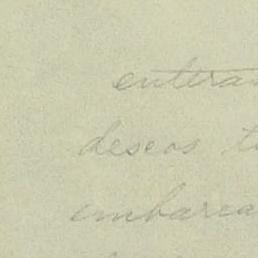 enteras
deseos t
embarca